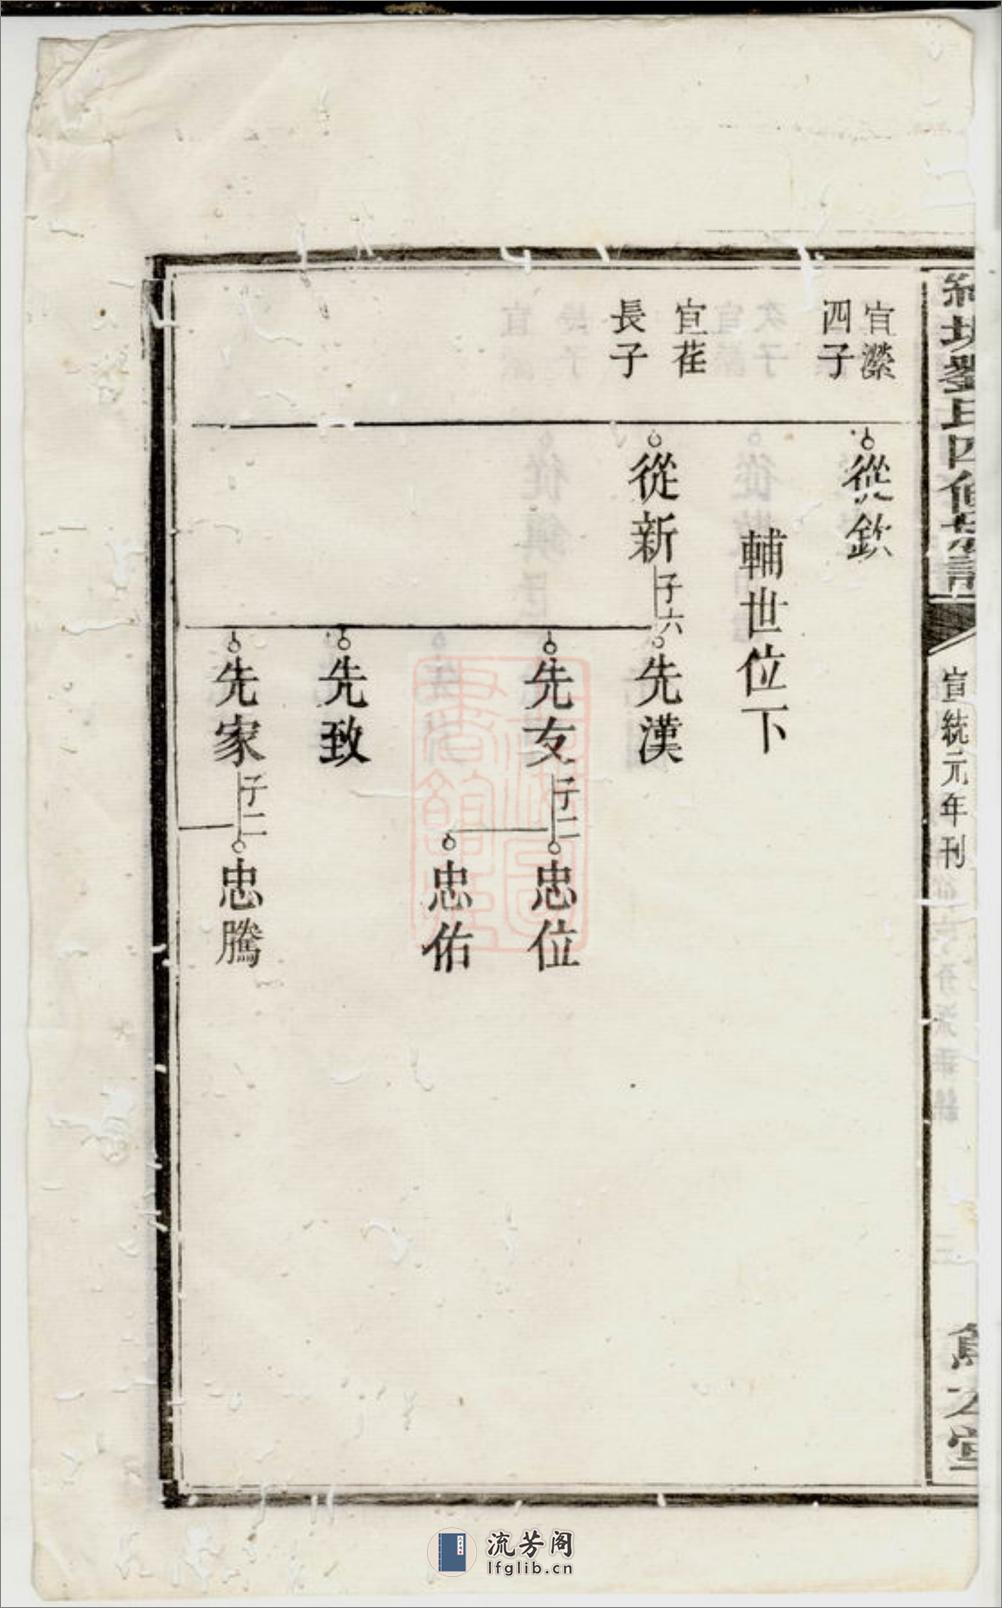 劉氏四修族譜
宣統元年刊
宣瀠
四子
從欽
輔世位下
宣荏
長子
從新
子六
先漢
先友
子二
忠位
忠佑
先致
先家
子二
忠騰
流芳阁
lfglib.cn